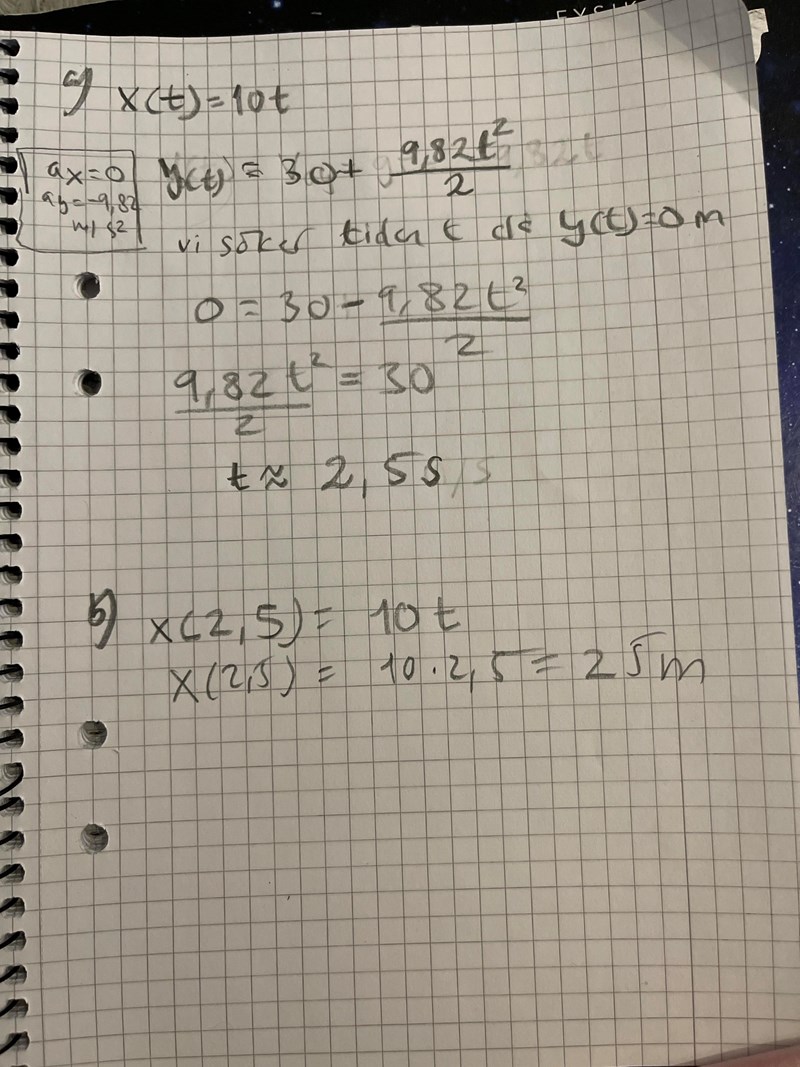 a) x(t)=10t
ax=0
ay=-9,82
m/s2
y(t) = 30+ 9,82t²/2
vi söker tiden t då y(t)=0m
0 = 30 - 9,82t²/2
9,82t²/2 = 30
t≈ 2,5s
b) x(2,5)= 10t
x(2,5) = 10·2,5 = 25m